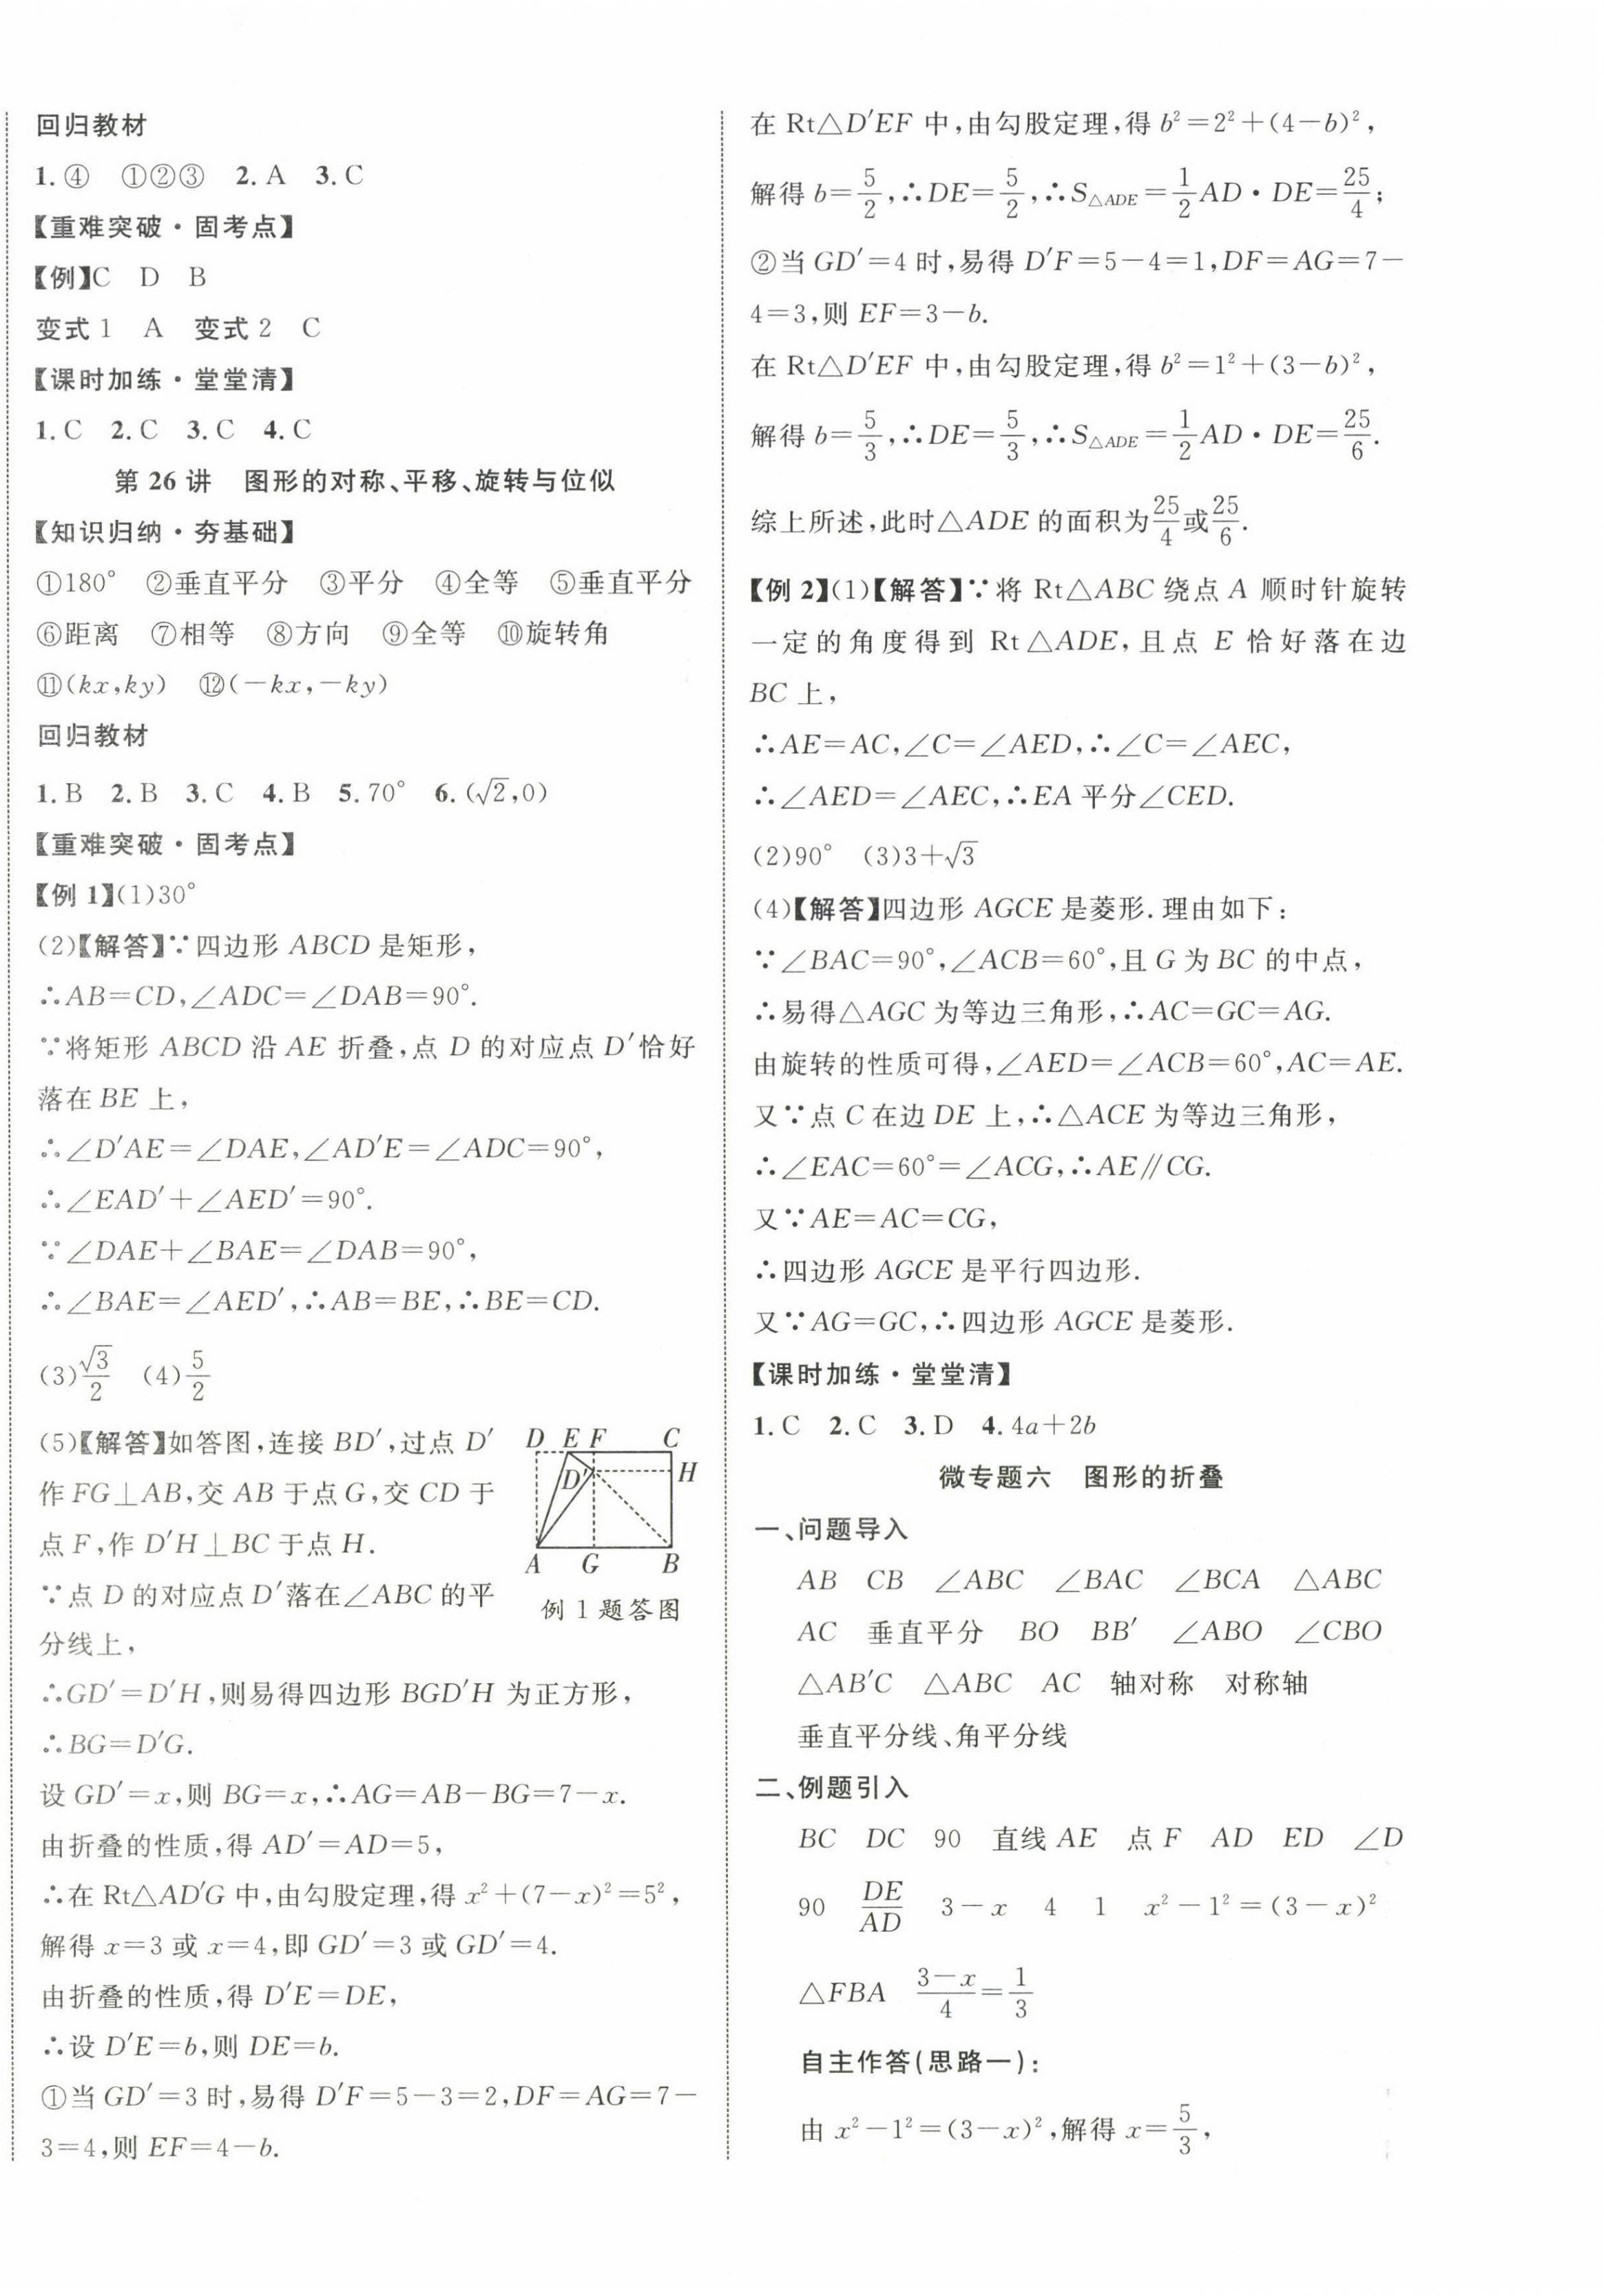 回归教材
1.④ ①②③ 2.A 3.C
【重难突破·固考点】
【例】C D B
变式1 A 变式2 C
【课时加练·堂堂清】
1.C 2.C 3.C 4.C
第26讲 图形的对称、平移、旋转与位似
【知识归纳·夯基础】
①180° ②垂直平分 ③平分 ④全等 ⑤垂直平分
⑥距离 ⑦相等 ⑧方向 ⑨全等 ⑩旋转角
⑪(kx,ky) ⑫(-kx,-ky)
回归教材
1.B 2.B 3.C 4.B 5.70° 6.(√2,0)
【重难突破·固考点】
【例1】(1)30°
(2)【解答】∵四边形ABCD是矩形,
∴AB=CD,∠ADC=∠DAB=90°.
∵将矩形ABCD沿AE折叠,点D的对应点D′恰好
落在BE上,
∴∠D′AE=∠DAE,∠AD′E=∠ADC=90°,
∴∠EAD′+∠AED′=90°.
∵∠DAE+∠BAE=∠DAB=90°,
∴∠BAE=∠AED′,∴AB=BE,∴BE=CD.
(3)√3/2 (4)5/2
(5)【解答】如答图,连接BD′,过点D′
作FG⊥AB,交AB于点G,交CD于
点F,作D′H⊥BC于点H.
∵点D的对应点D′落在∠ABC的平
分线上,
D E F C
D′ H
A G B
例1题答图
∴GD′=D′H,则易得四边形BGD′H为正方形,
∴BG=D′G.
设GD′=x,则BG=x,∴AG=AB-BG=7-x.
由折叠的性质,得AD′=AD=5,
∴在Rt△AD′G中,由勾股定理,得x²+(7-x)²=5²,
解得x=3或x=4,即GD′=3或GD′=4.
由折叠的性质,得D′E=DE,
∴设D′E=b,则DE=b.
①当GD′=3时,易得D′F=5-3=2,DF=AG=7-
3=4,则EF=4-b.
在Rt△D′EF中,由勾股定理,得b²=2²+(4-b)²,
解得b=5/2,∴DE=5/2,∴S△ADE=1/2AD·DE=25/4;
②当GD′=4时,易得D′F=5-4=1,DF=AG=7-
4=3,则EF=3-b.
在Rt△D′EF中,由勾股定理,得b²=1²+(3-b)²,
解得b=5/3,∴DE=5/3,∴S△ADE=1/2AD·DE=25/6.
综上所述,此时△ADE的面积为25/4或25/6.
【例2】(1)【解答】∵将Rt△ABC绕点A顺时针旋转
一定的角度得到Rt△ADE,且点E恰好落在边
BC上,
∴AE=AC,∠C=∠AED,∴∠C=∠AEC,
∴∠AED=∠AEC,∴EA平分∠CED.
(2)90° (3)3+√3
(4)【解答】四边形AGCE是菱形.理由如下:
∵∠BAC=90°,∠ACB=60°,且G为BC的中点,
∴易得△AGC为等边三角形,∴AC=GC=AG.
由旋转的性质可得,∠AED=∠ACB=60°,AC=AE.
又∵点C在边DE上,∴△ACE为等边三角形,
∴∠EAC=60°=∠ACG,∴AE∥CG.
又∵AE=AC=CG,
∴四边形AGCE是平行四边形.
又∵AG=GC,∴四边形AGCE是菱形.
【课时加练·堂堂清】
1.C 2.C 3.D 4.4a+2b
微专题六 图形的折叠
一、问题导入
AB CB ∠ABC ∠BAC ∠BCA △ABC
AC 垂直平分 BO BB′ ∠ABO ∠CBO
△AB′C △ABC AC 轴对称 对称轴
垂直平分线、角平分线
二、例题引入
BC DC 90 直线AE 点F AD ED ∠D
90 DE/AD 3-x 4 1 x²-1²=(3-x)²
△FBA (3-x)/4=1/3
自主作答(思路一):
由x²-1²=(3-x)²,解得x=5/3,